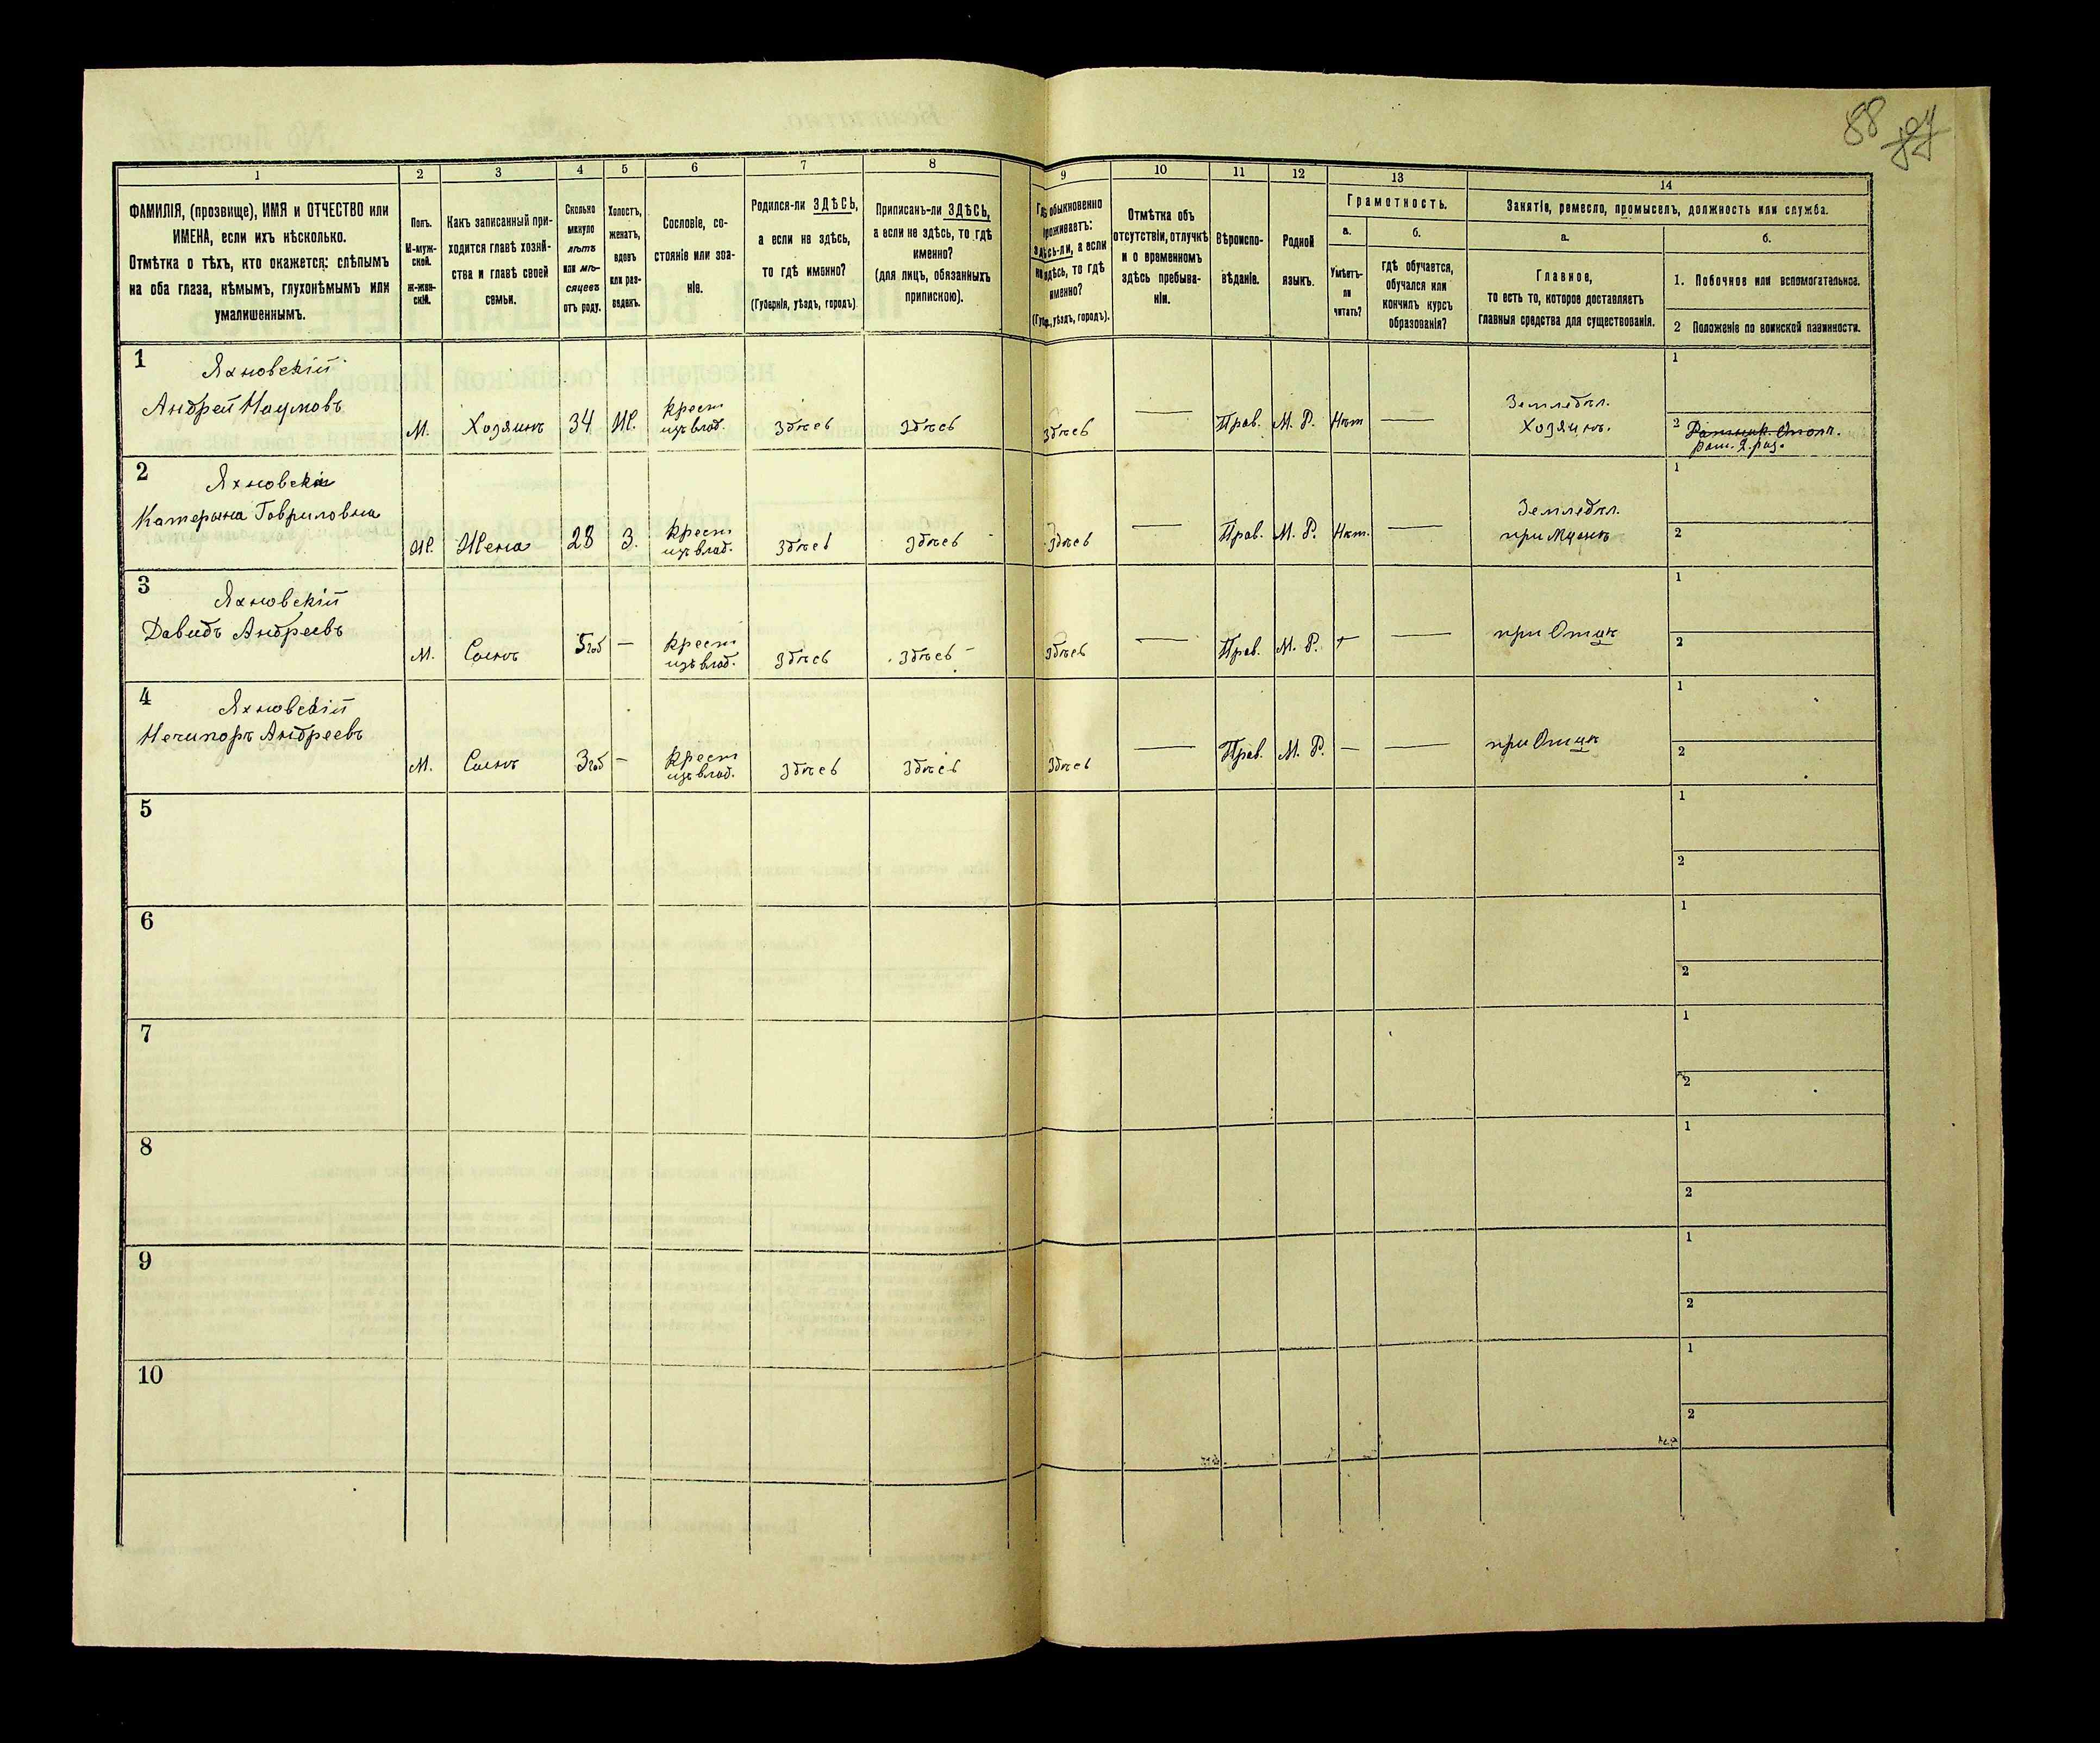 88
1
2
3
4
5
6
7
8
9
10
11
12
13
14
ФАМИЛІЯ, (прозвище), ИМЯ и ОТЧЕСТВО или
ИМЕНА, если ихъ нѣсколько.
Отмѣтка о тѣхъ, кто окажется: слѣпымъ
на оба глаза, нѣмымъ, глухонѣмымъ или
умалишеннымъ.
Полъ.
М-муж-
ской.
Ж-жен-
скій.
Какъ записанный при-
ходится главѣ хозяй-
ства и главѣ своей
семьи.
Сколько
минуло
лѣтъ
или мѣ-
сяцевъ
отъ роду.
Холостъ,
женатъ,
вдовъ
или раз-
веденъ.
Сословіе, со-
стояніе или зва-
ніе.
Родился-ли ЗДѢСЬ,
а если не здѣсь,
то гдѣ именно?
(Губернія, уѣздъ, городъ)
Приписанъ-ли ЗДѢСЬ,
а если не здѣсь, то гдѣ
именно?
(для лицъ, обязанныхъ
припискою).
Гдѣ обыкновенно
проживаетъ:
здѣсь-ли, а если
не здѣсь, то гдѣ
именно?
(Губ., уѣздъ, городъ).
Отмѣтка объ
отсутствіи, отлучкѣ
и о временномъ
здѣсь пребыва-
ніи.
Вѣроиспо-
вѣданіе.
Родной
языкъ.
Грамотность.
а.
Умѣетъ-
ли
читать?
б.
гдѣ обучается,
обучался или
кончилъ курсъ
образованія?
Занятіе, ремесло, промыселъ, должность или служба.
а.
Главное,
то есть то, которое доставляетъ
главныя средства для существованія.
б.
1. Побочное или вспомогательное.
2 Положеніе по воинской повинности.
1
Яхновскій
Андрей Наумовъ
М.
Хозяинъ
34
Ж.
крест
изъ влад.
здѣсь
здѣсь
здѣсь
—
Прав.
М. Р.
Нѣт
—
Земледѣл.
Хозяинъ.
1
2
Рат. 2. раз.
2
Яхновская
Катерина Гавриловна
Ж.
Жена
28
З.
крест
изъ влад.
здѣсь
здѣсь
здѣсь
—
Прав.
М. Р.
Нѣт.
—
Земледѣл.
при Мужѣ
1
2
3
Яхновскій
Давидъ Андреевъ
М.
Сынъ
5 год
—
крест
изъ влад.
здѣсь
здѣсь
здѣсь
—
Прав.
М. Р.
—
при Отцѣ
1
2
4
Яхновскій
Нечипоръ Андреевъ
М.
Сынъ
3 год
—
крест
изъ влад.
здѣсь
здѣсь
здѣсь
—
Прав.
М. Р.
—
—
при Отцѣ
1
2
5
1
2
6
1
2
7
1
2
8
1
2
9
1
2
10
1
2